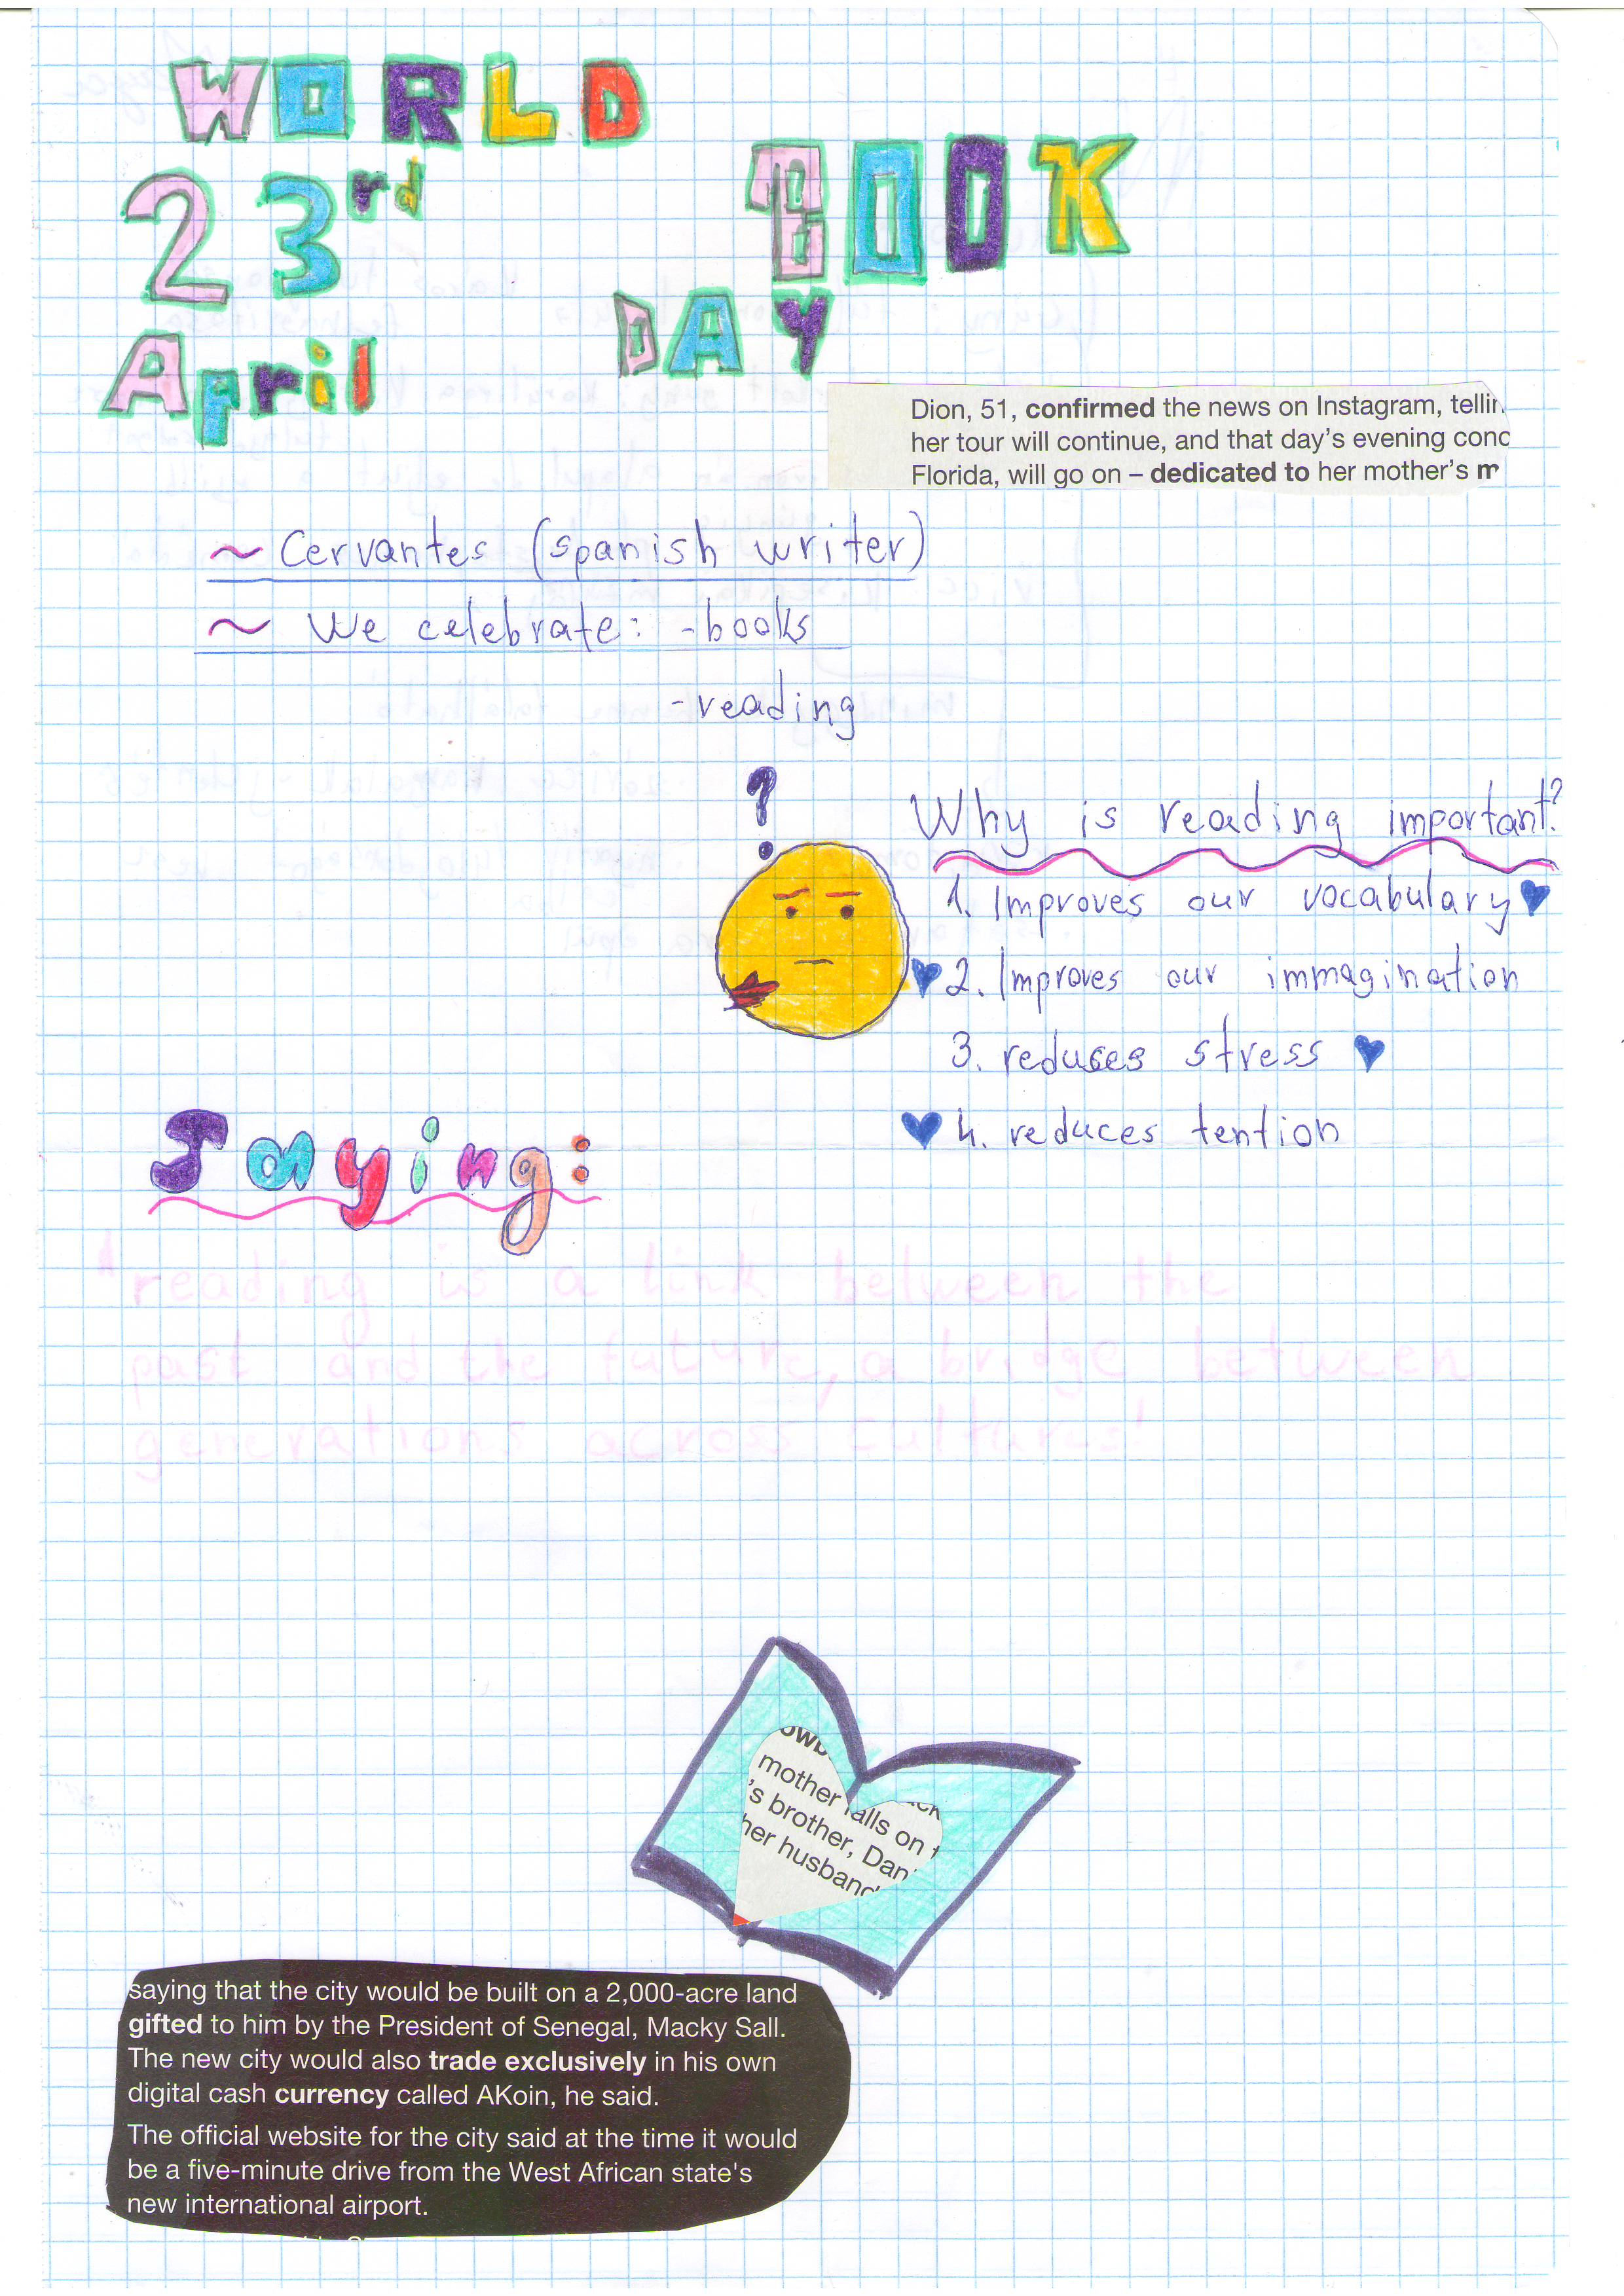 WORLD
BOOK
DAY
23rd
April
Dion, 51, confirmed the news on Instagram, tellin
her tour will continue, and that day's evening conc
Florida, will go on – dedicated to her mother's m
~ Cervantes (spanish writer)
~ We celebrate: -books
-reading
?
Why is reading important?
1. Improves our vocabulary
2. Improves our immagination
3. reduces stress
4. reduces tention
Saying:
"reading is a link between the
past and the future, a bridge between
generations across cultures!
mother falls on
's brother, Dan
her husband
saying that the city would be built on a 2,000-acre land
gifted to him by the President of Senegal, Macky Sall.
The new city would also trade exclusively in his own
digital cash currency called AKoin, he said.
The official website for the city said at the time it would
be a five-minute drive from the West African state's
new international airport.